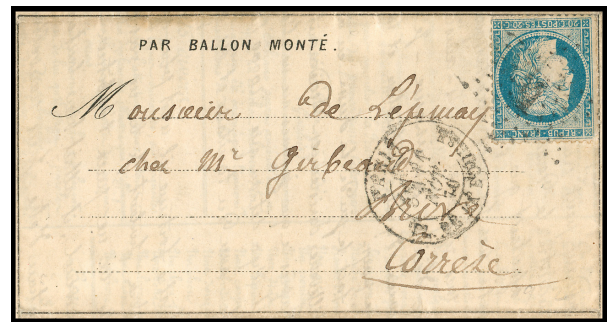 PAR BALLON MONTÉ.
Monsieur de Lépinay
chez Mr Girbeaud
Brive
Corrèze
20 C POSTES 20 C
REPUB FRANC
PARIS